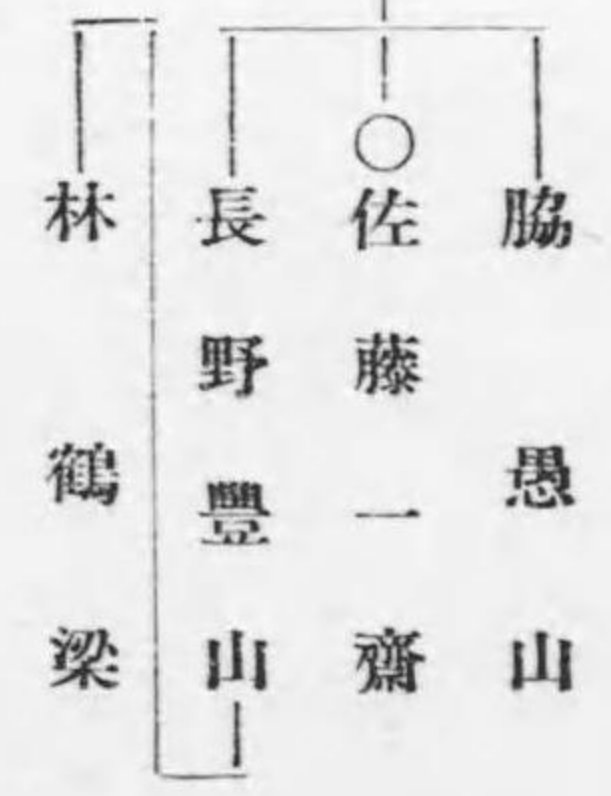 脇愚山
○佐藤一齋
長野豐山
林鶴梁